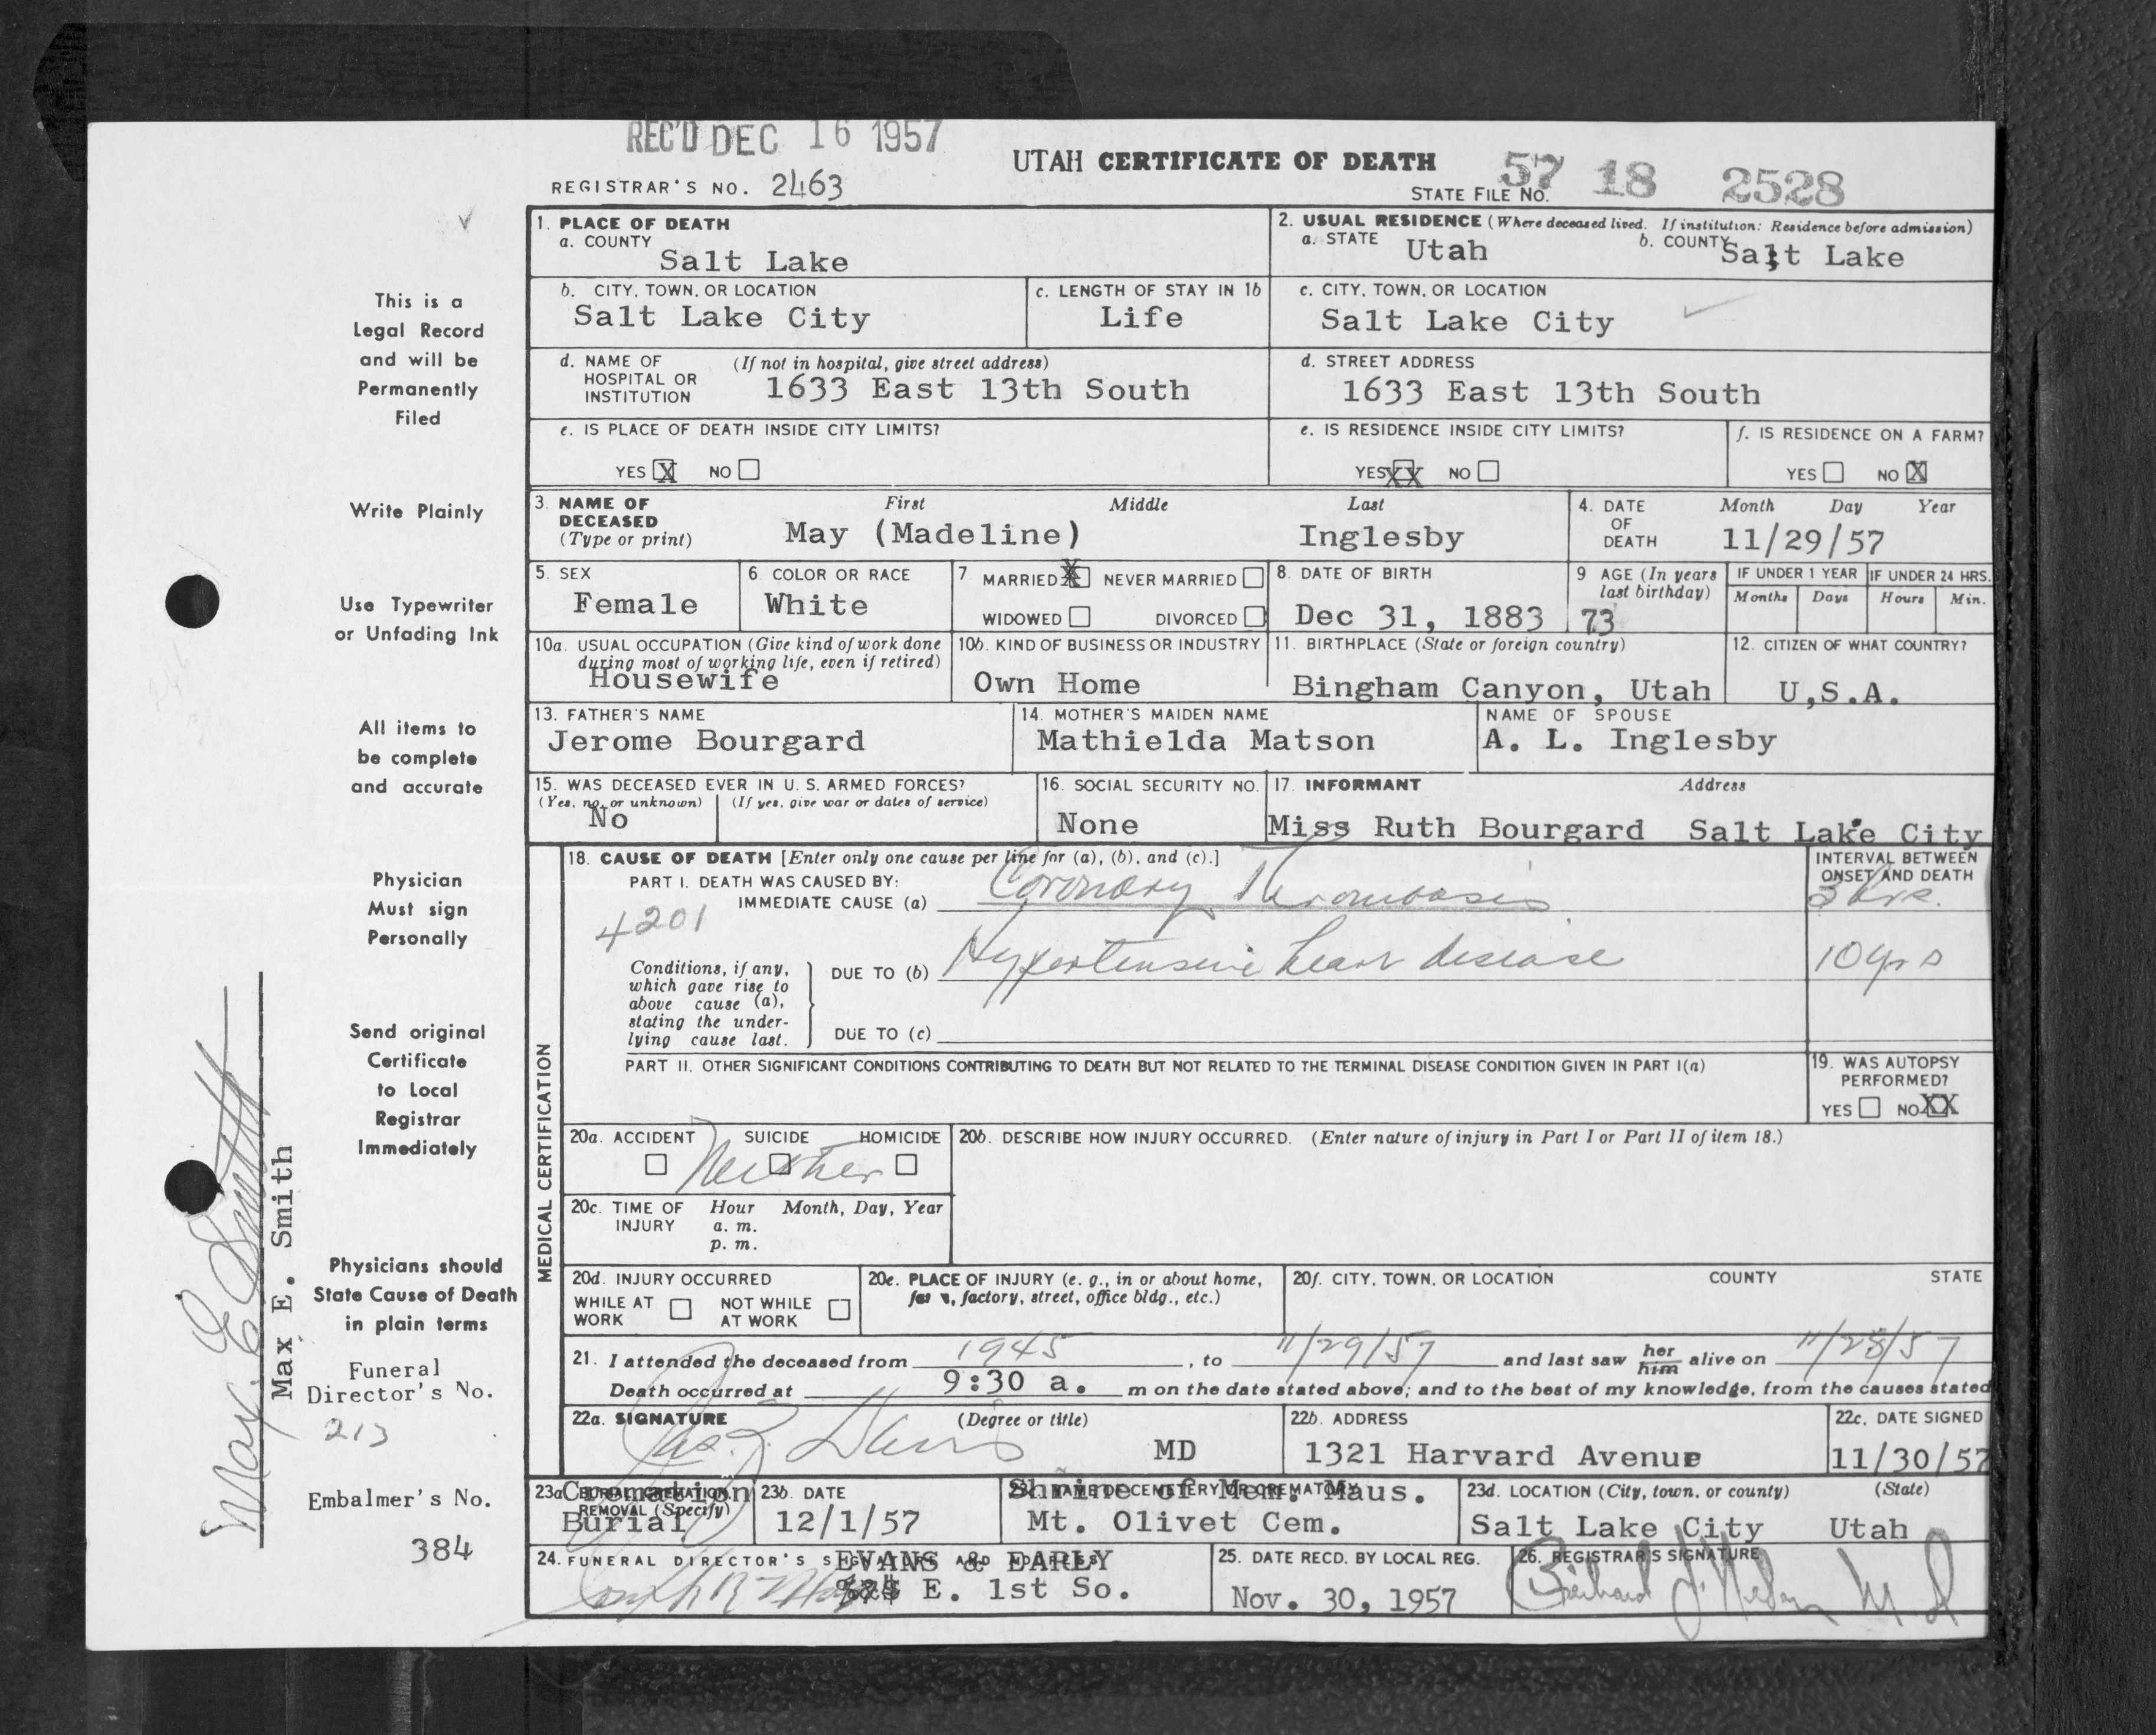 REC'D DEC 16 1957
UTAH CERTIFICATE OF DEATH
REGISTRAR'S NO. 2463
STATE FILE NO. 57 18 2528
1. PLACE OF DEATH
a. COUNTY
Salt Lake
2. USUAL RESIDENCE (Where deceased lived. If institution: Residence before admission)
a. STATE Utah b. COUNTY Salt Lake
b. CITY, TOWN, OR LOCATION
Salt Lake City
c. LENGTH OF STAY IN 1b
Life
c. CITY, TOWN, OR LOCATION
Salt Lake City
d. NAME OF HOSPITAL OR INSTITUTION (If not in hospital, give street address)
1633 East 13th South
d. STREET ADDRESS
1633 East 13th South
e. IS PLACE OF DEATH INSIDE CITY LIMITS?
YES X NO
e. IS RESIDENCE INSIDE CITY LIMITS?
YES XX NO
f. IS RESIDENCE ON A FARM?
YES NO X
3. NAME OF DECEASED (Type or print)
First Middle Last
May (Madeline) Inglesby
4. DATE OF DEATH
Month Day Year
11/29/57
5. SEX
Female
6. COLOR OR RACE
White
7 MARRIED X NEVER MARRIED
WIDOWED DIVORCED
8. DATE OF BIRTH
Dec 31, 1883
9 AGE (In years last birthday)
73
IF UNDER 1 YEAR
Months Days
IF UNDER 24 HRS.
Hours Min.
10a. USUAL OCCUPATION (Give kind of work done
during most of working life, even if retired)
Housewife
10b. KIND OF BUSINESS OR INDUSTRY
Own Home
11. BIRTHPLACE (State or foreign country)
Bingham Canyon, Utah
12. CITIZEN OF WHAT COUNTRY?
U,S.A.
13. FATHER'S NAME
Jerome Bourgard
14. MOTHER'S MAIDEN NAME
Mathielda Matson
NAME OF SPOUSE
A. L. Inglesby
15. WAS DECEASED EVER IN U. S. ARMED FORCES?
(Yes, no, or unknown) (If yes, give war or dates of service)
No
16. SOCIAL SECURITY NO.
None
17. INFORMANT Address
Miss Ruth Bourgard Salt Lake City
MEDICAL CERTIFICATION
18. CAUSE OF DEATH [Enter only one cause per line for (a), (b), and (c).]
PART I. DEATH WAS CAUSED BY:
IMMEDIATE CAUSE (a) Coronary Thrombosis
INTERVAL BETWEEN
ONSET AND DEATH
3 hrs.
4201
Conditions, if any,
which gave rise to
above cause (a),
stating the under-
lying cause last.
DUE TO (b) Hypertensive heart disease
10 yrs
DUE TO (c)
PART II. OTHER SIGNIFICANT CONDITIONS CONTRIBUTING TO DEATH BUT NOT RELATED TO THE TERMINAL DISEASE CONDITION GIVEN IN PART I(a)
19. WAS AUTOPSY
PERFORMED?
YES NO XX
20a. ACCIDENT SUICIDE HOMICIDE
Neither
20b. DESCRIBE HOW INJURY OCCURRED. (Enter nature of injury in Part I or Part II of item 18.)
20c. TIME OF INJURY
Hour Month, Day, Year
a. m.
p. m.
20d. INJURY OCCURRED
WHILE AT WORK
NOT WHILE AT WORK
20e. PLACE OF INJURY (e. g., in or about home,
farm, factory, street, office bldg., etc.)
20f. CITY, TOWN, OR LOCATION COUNTY STATE
21. I attended the deceased from 1945, to 11/29/57 and last saw her him alive on 11/28/57
Death occurred at 9:30 a. m on the date stated above; and to the best of my knowledge, from the causes stated
22a. SIGNATURE (Degree or title)
Jas. Z. Davis MD
22b. ADDRESS
1321 Harvard Avenue
22c. DATE SIGNED
11/30/57
23a. BURIAL, CREMATION, REMOVAL (Specify)
Cremation
Burial
23b. DATE
12/1/57
23c. NAME OF CEMETERY OR CREMATORY
Shrine of Mem. Maus.
Mt. Olivet Cem.
23d. LOCATION (City, town, or county) (State)
Salt Lake City Utah
24. FUNERAL DIRECTOR'S SIGNATURE AND ADDRESS
EVANS & EARLY
E. 1st So.
25. DATE RECD. BY LOCAL REG.
Nov. 30, 1957
26. REGISTRAR'S SIGNATURE
This is a
Legal Record
and will be
Permanently
Filed
Write Plainly
Use Typewriter
or Unfading Ink
All items to
be complete
and accurate
Physician
Must sign
Personally
Send original
Certificate
to Local
Registrar
Immediately
Physicians should
State Cause of Death
in plain terms
Funeral
Director's No.
213
Embalmer's No.
384
Max E Smith
Max E. Smith